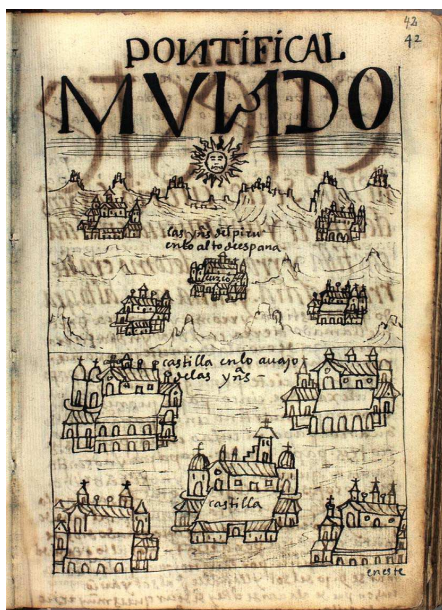 42
42
PONTÍFÍCAL
MVNDO
las yns del piru
en lo alto de españa
cuzco
castilla en lo auajo
de las yñs
castilla
en este